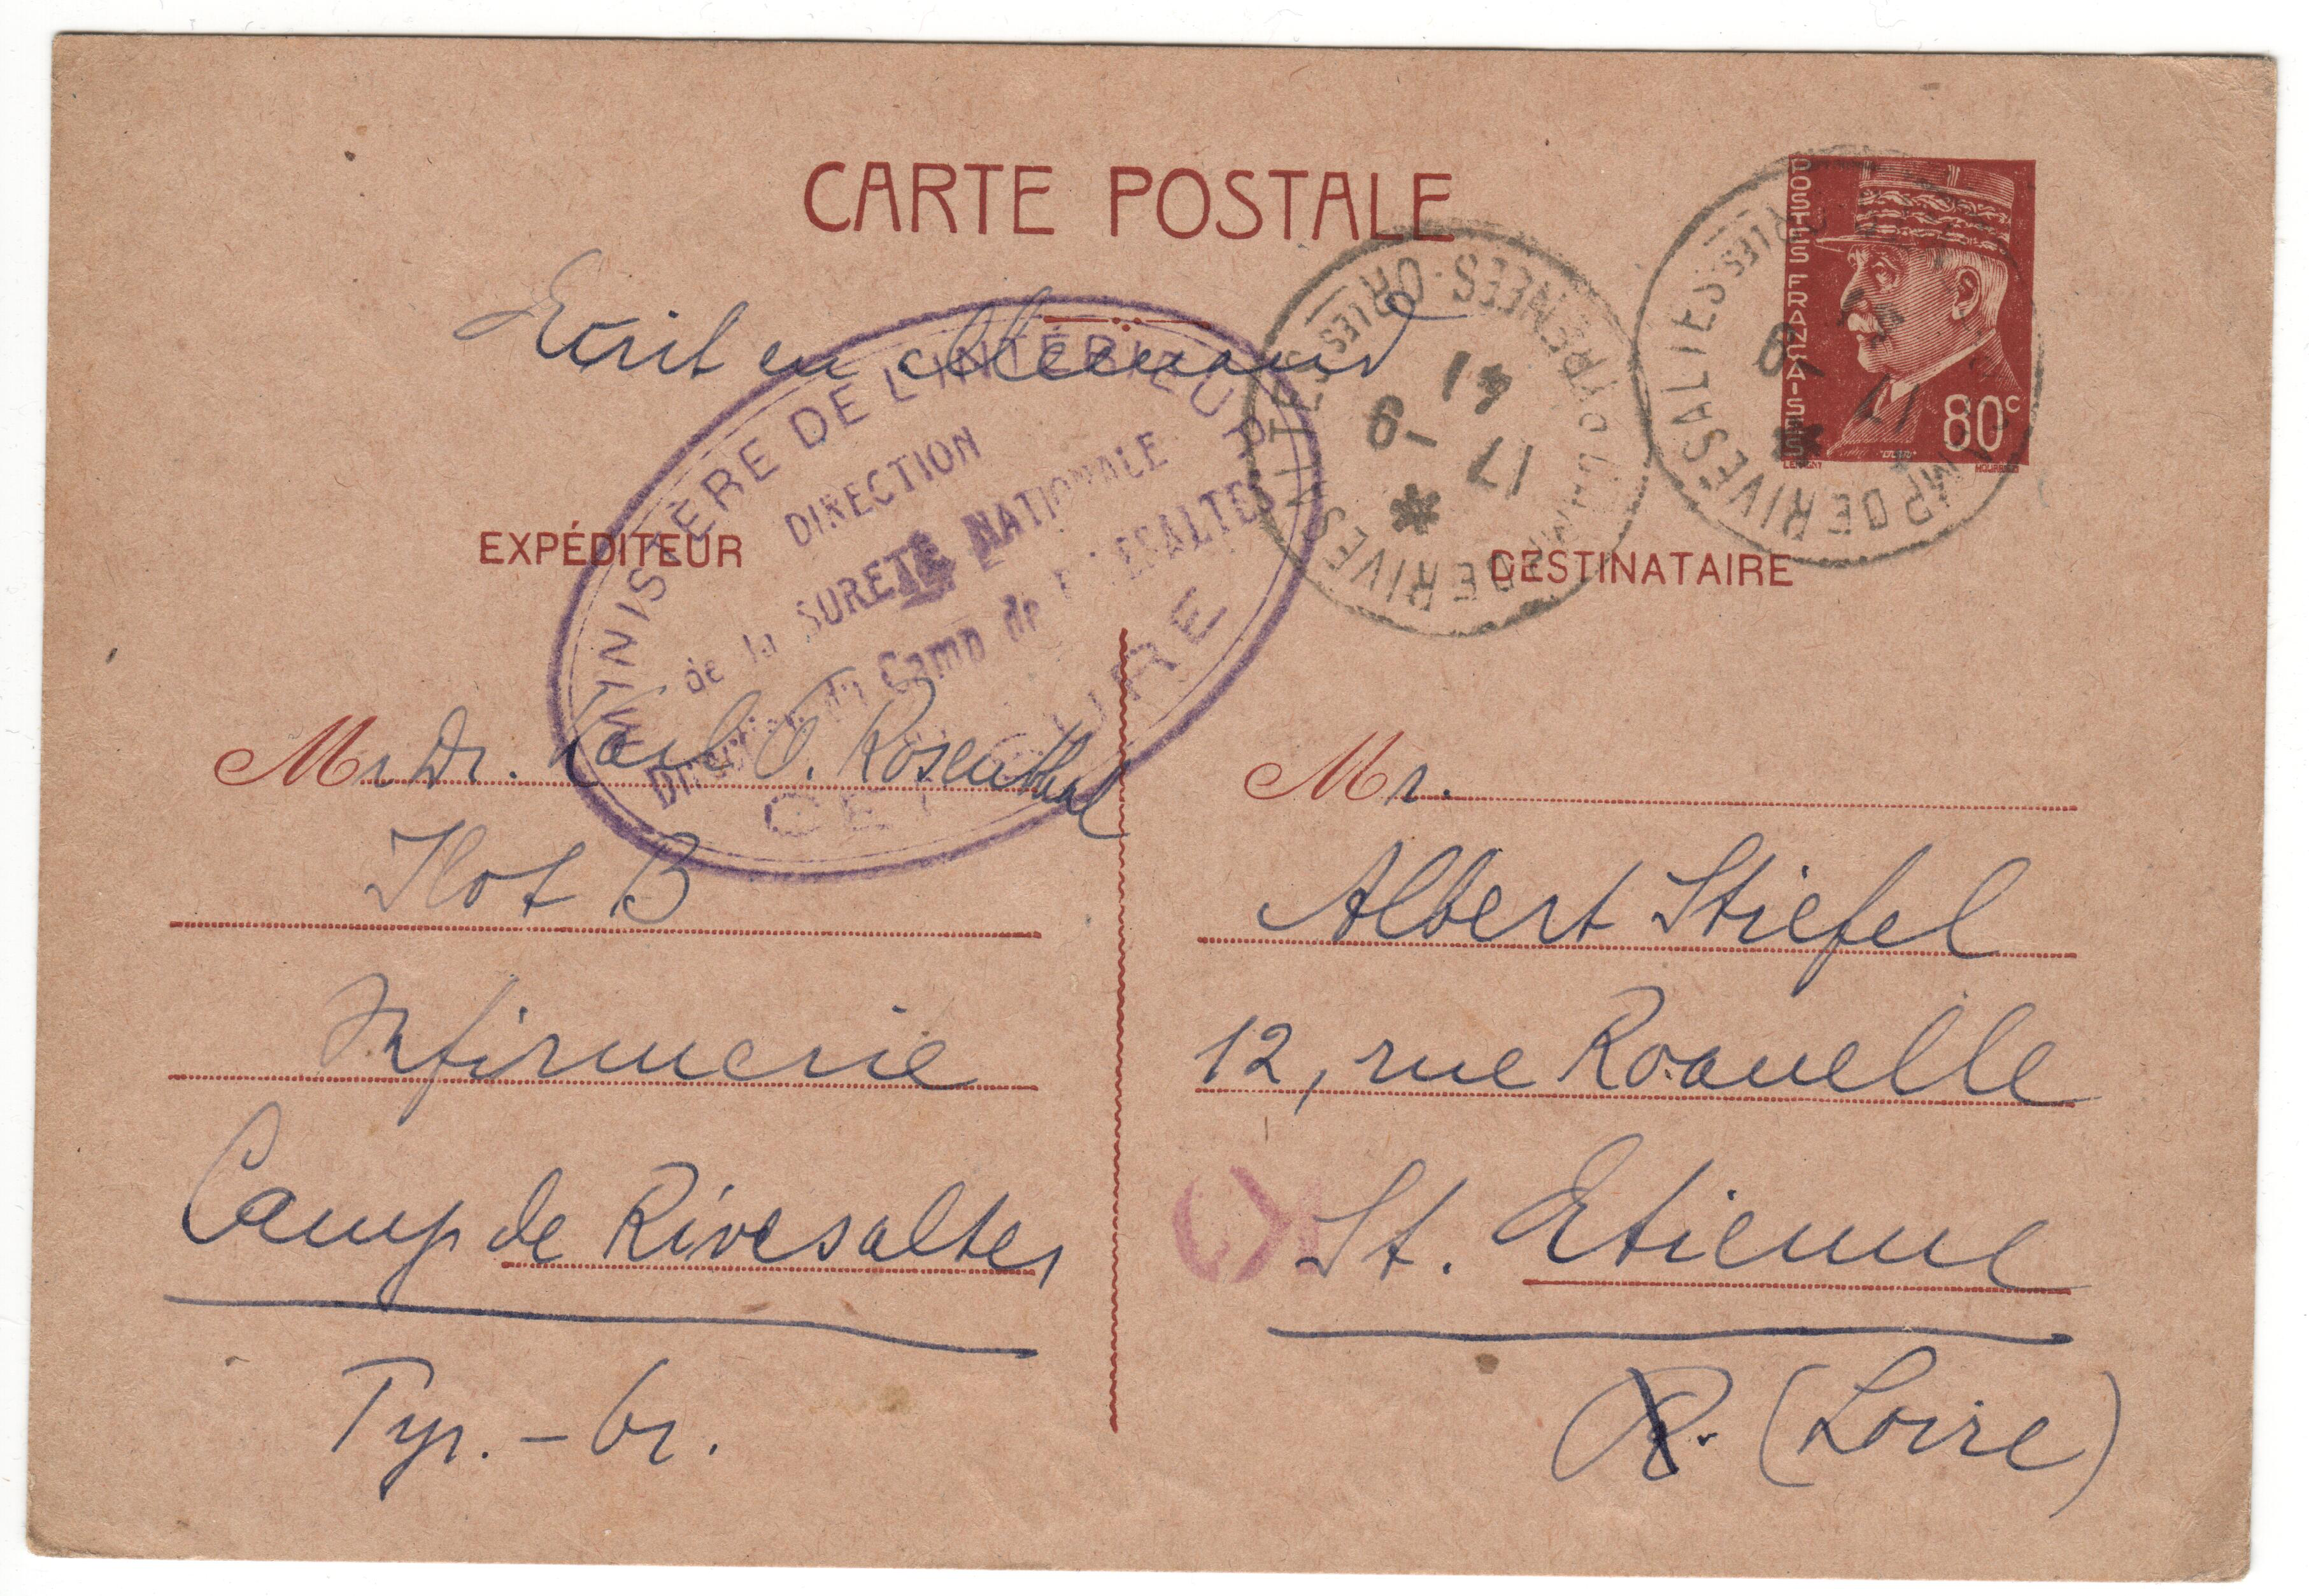 CARTE POSTALE
POSTES FRANÇAISES
80c
Ecrit en Allemand
MINISTÈRE DE L'INTÉRIEUR
DIRECTION
de la SURETÉ NATIONALE
du Camp de RIVESALTES
CENSURE
PYRENEES-ORIES
CAMP DE RIVESALTES
17 -9
41
CAMP DE RIVESALTES
ORIES
17 -9
EXPÉDITEUR
DESTINATAIRE
Mr Dr. Karl O. Rosenthal
Ilot B
Infirmerie
Camp de Rivesaltes
Pyr. - Or.
Mr.
Albert Stiefel
12, rue Roauelle
St. Etienne
(Loire)